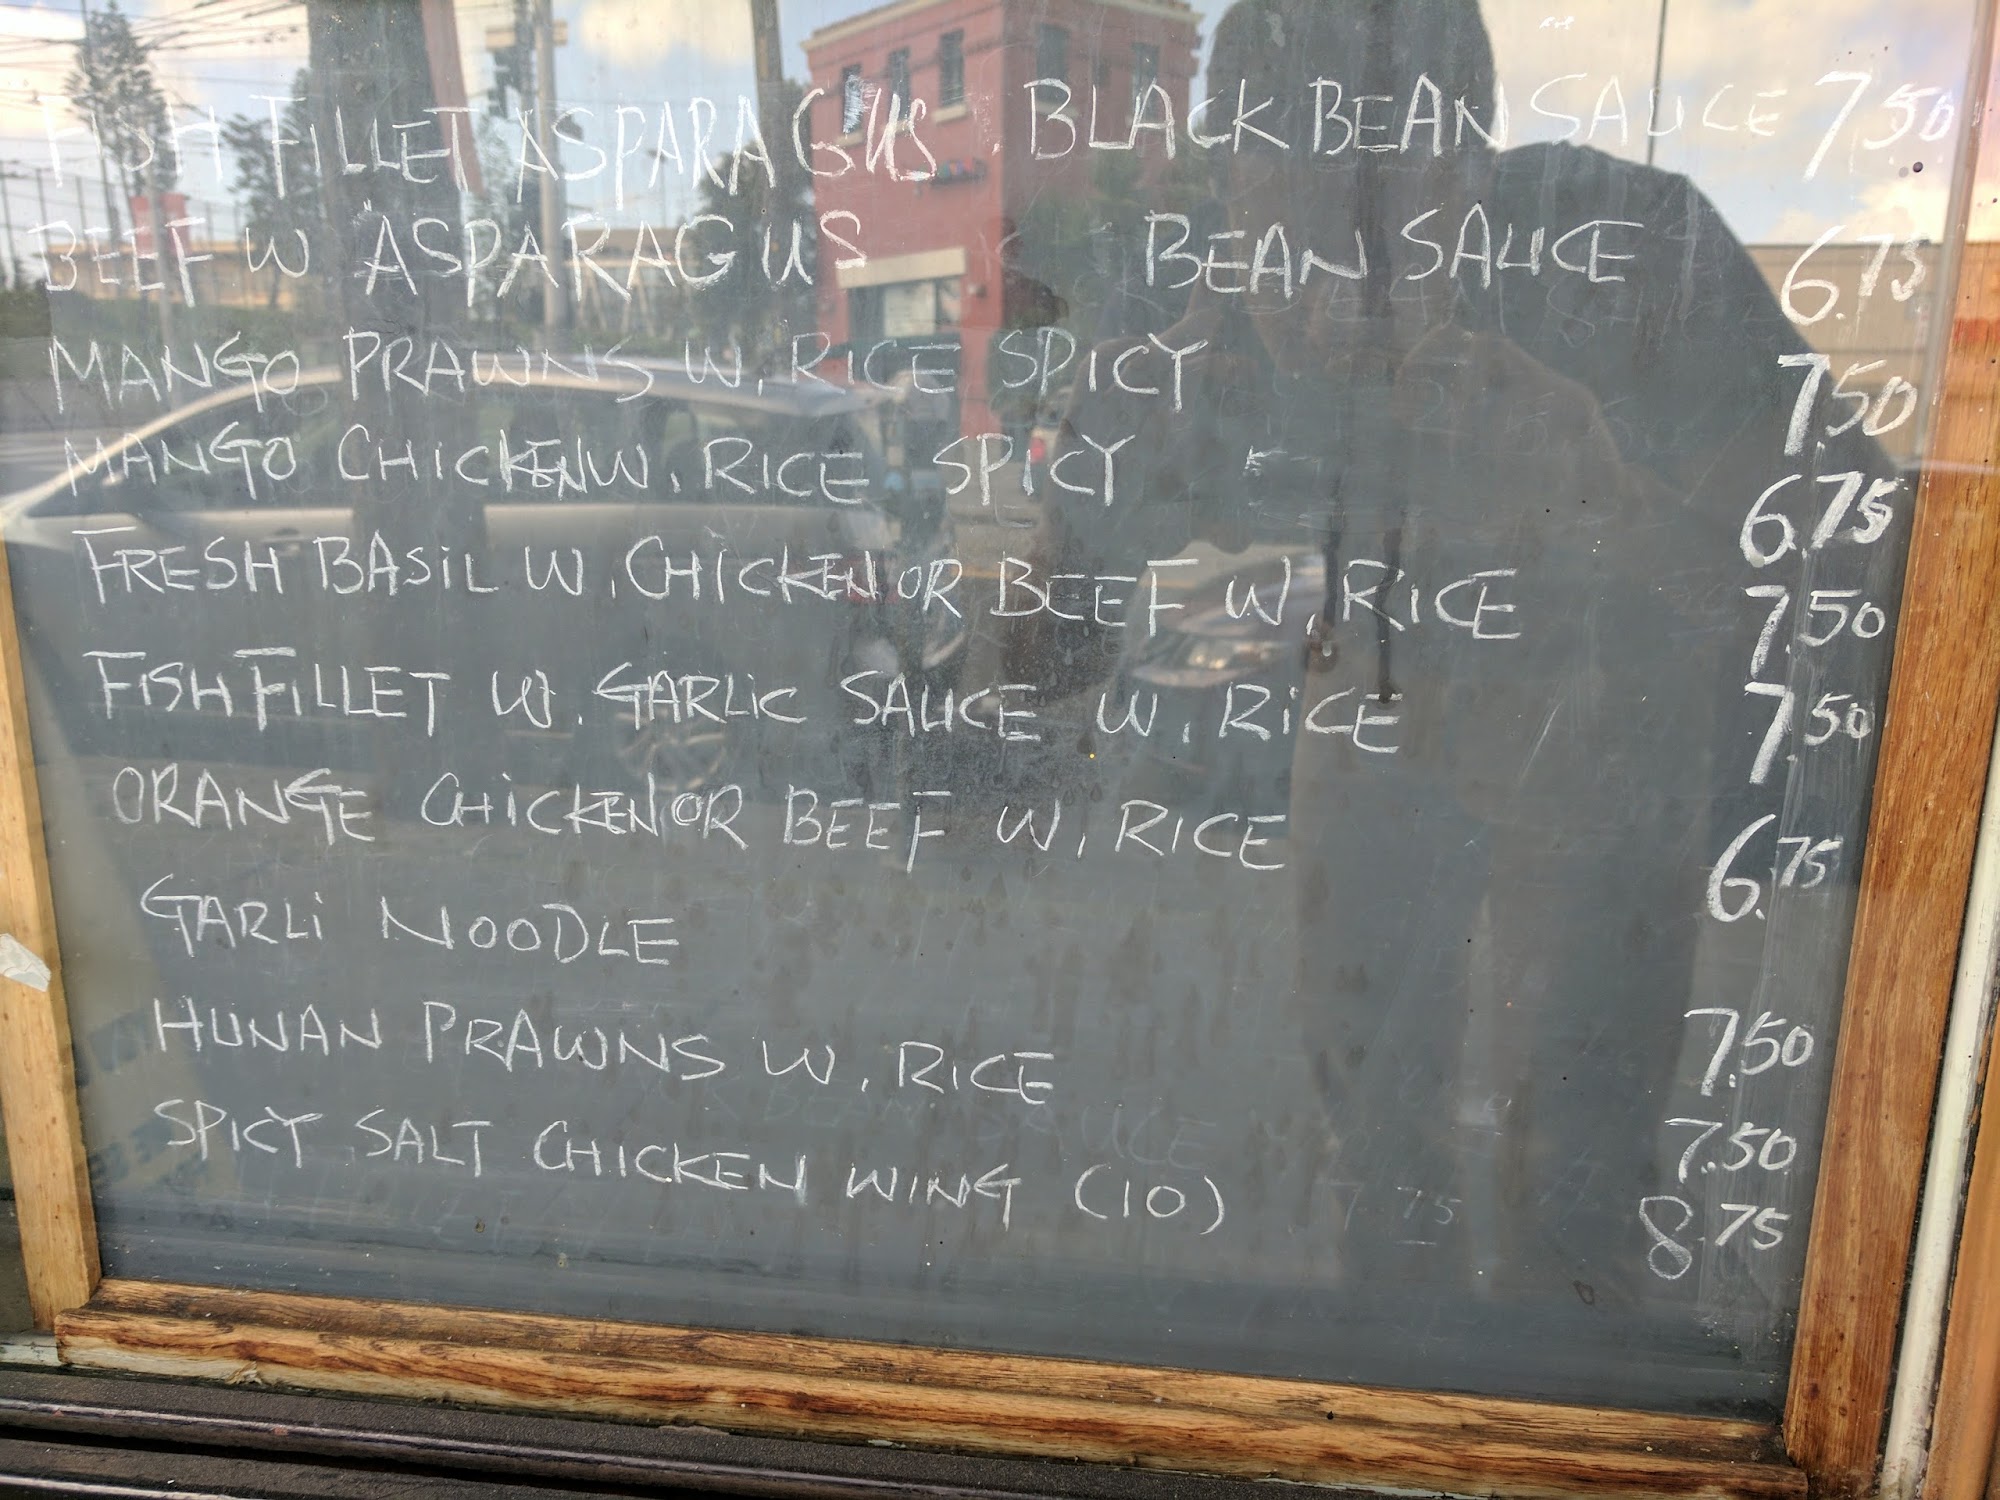 FISH FILLET ASPARAGUS BLACK BEAN SAUCE 7.50
BEEF W ASPARAGUS BEAN SAUCE 6.75
MANGO PRAWNS W. RICE SPICY 7.50
MANGO CHICKEN W. RICE SPICY 6.75
FRESH BASIL W. CHICKEN OR BEEF W. RICE 7.50
FISH FILLET W. GARLIC SAUCE W. RICE 7.50
ORANGE CHICKEN OR BEEF W. RICE 6.75
GARLI NOODLE 7.50
HUNAN PRAWNS W. RICE 7.50
SPICY SALT CHICKEN WING (10) 8.75